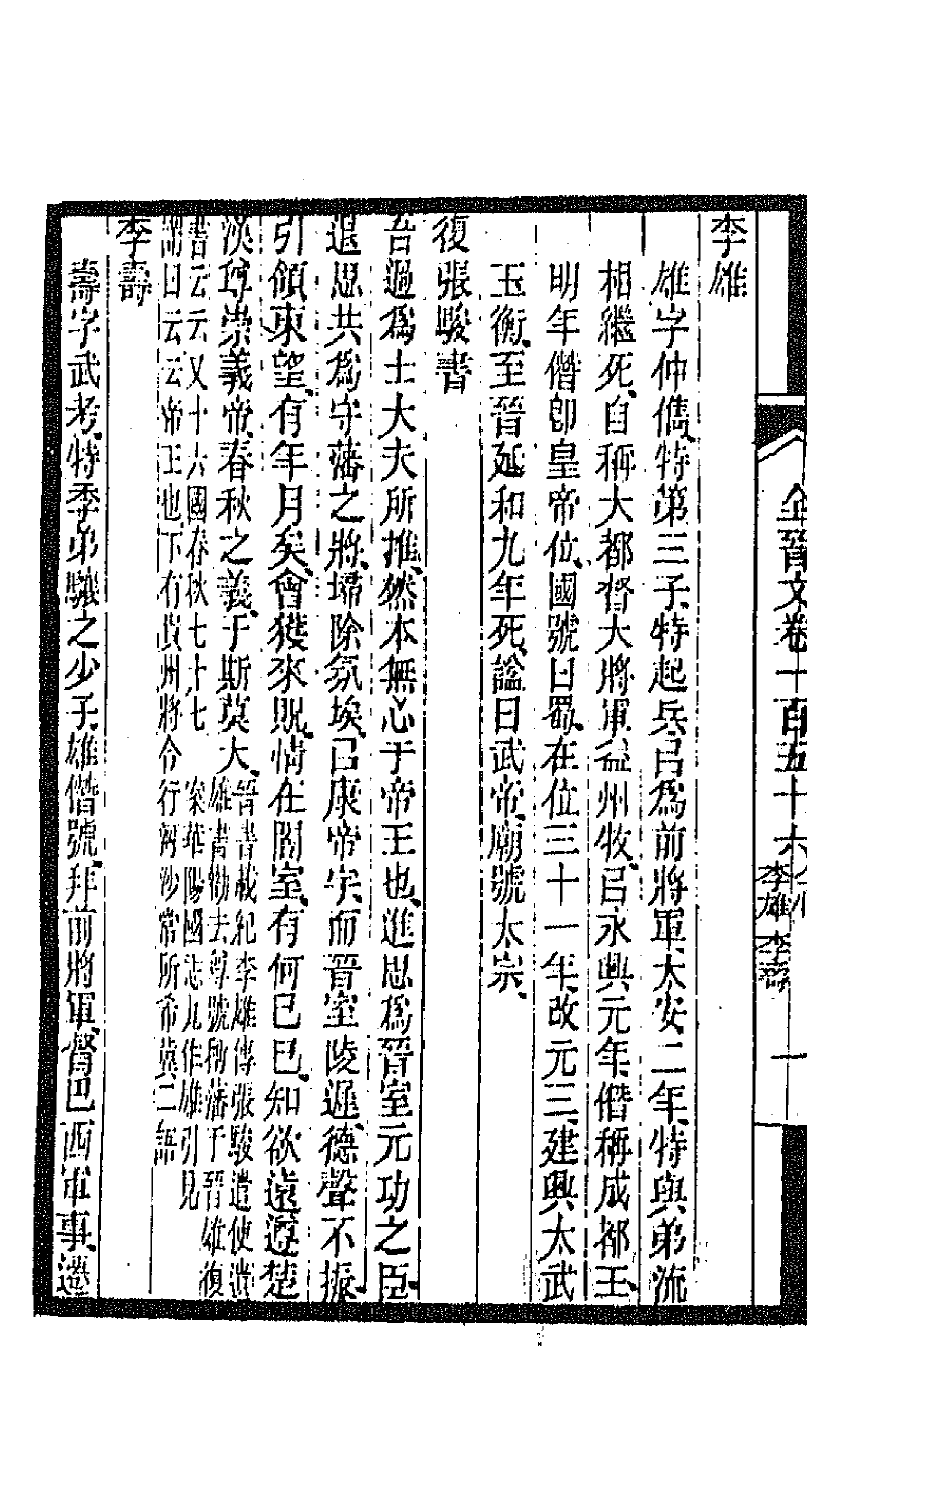 全晉文卷一百五十六 李雄 李壽 一
李雄
雄字仲儁、特第三子、特起兵、㠯爲前將軍、太安二年、特與弟流
相繼死、自稱大都督大將軍益州牧、㠯永興元年僭稱成都王、
明年僭卽皇帝位、國號曰蜀、在位三十一年、改元三、建興太武
玉衡、至晉延和九年死、諡曰武帝、廟號太宗、
復張駿書
吾過爲士大夫所推、然本無心于帝王也、進思爲晉室元功之臣、
退思共爲守藩之將、埽除氛埃、㠯康帝宇、而晉室陵遲、德聲不振、
引領東望、有年月矣、會獲來貺、情在闇室、有何已已、知欲遠遵楚
漢尊崇義帝、春秋之義、于斯莫大、
晉書載紀李雄傳張駿遣使遺
雄書勸去尊號稱藩于晉雄復
書云云又十六國春秋七十七 案華陽國志九作雄引見
謂曰云云帝王也下有州將令行沙常所希冀二語
李壽
壽字武考、特季弟驤之少子、雄僭號、拜前將軍、督巴西軍事、遷